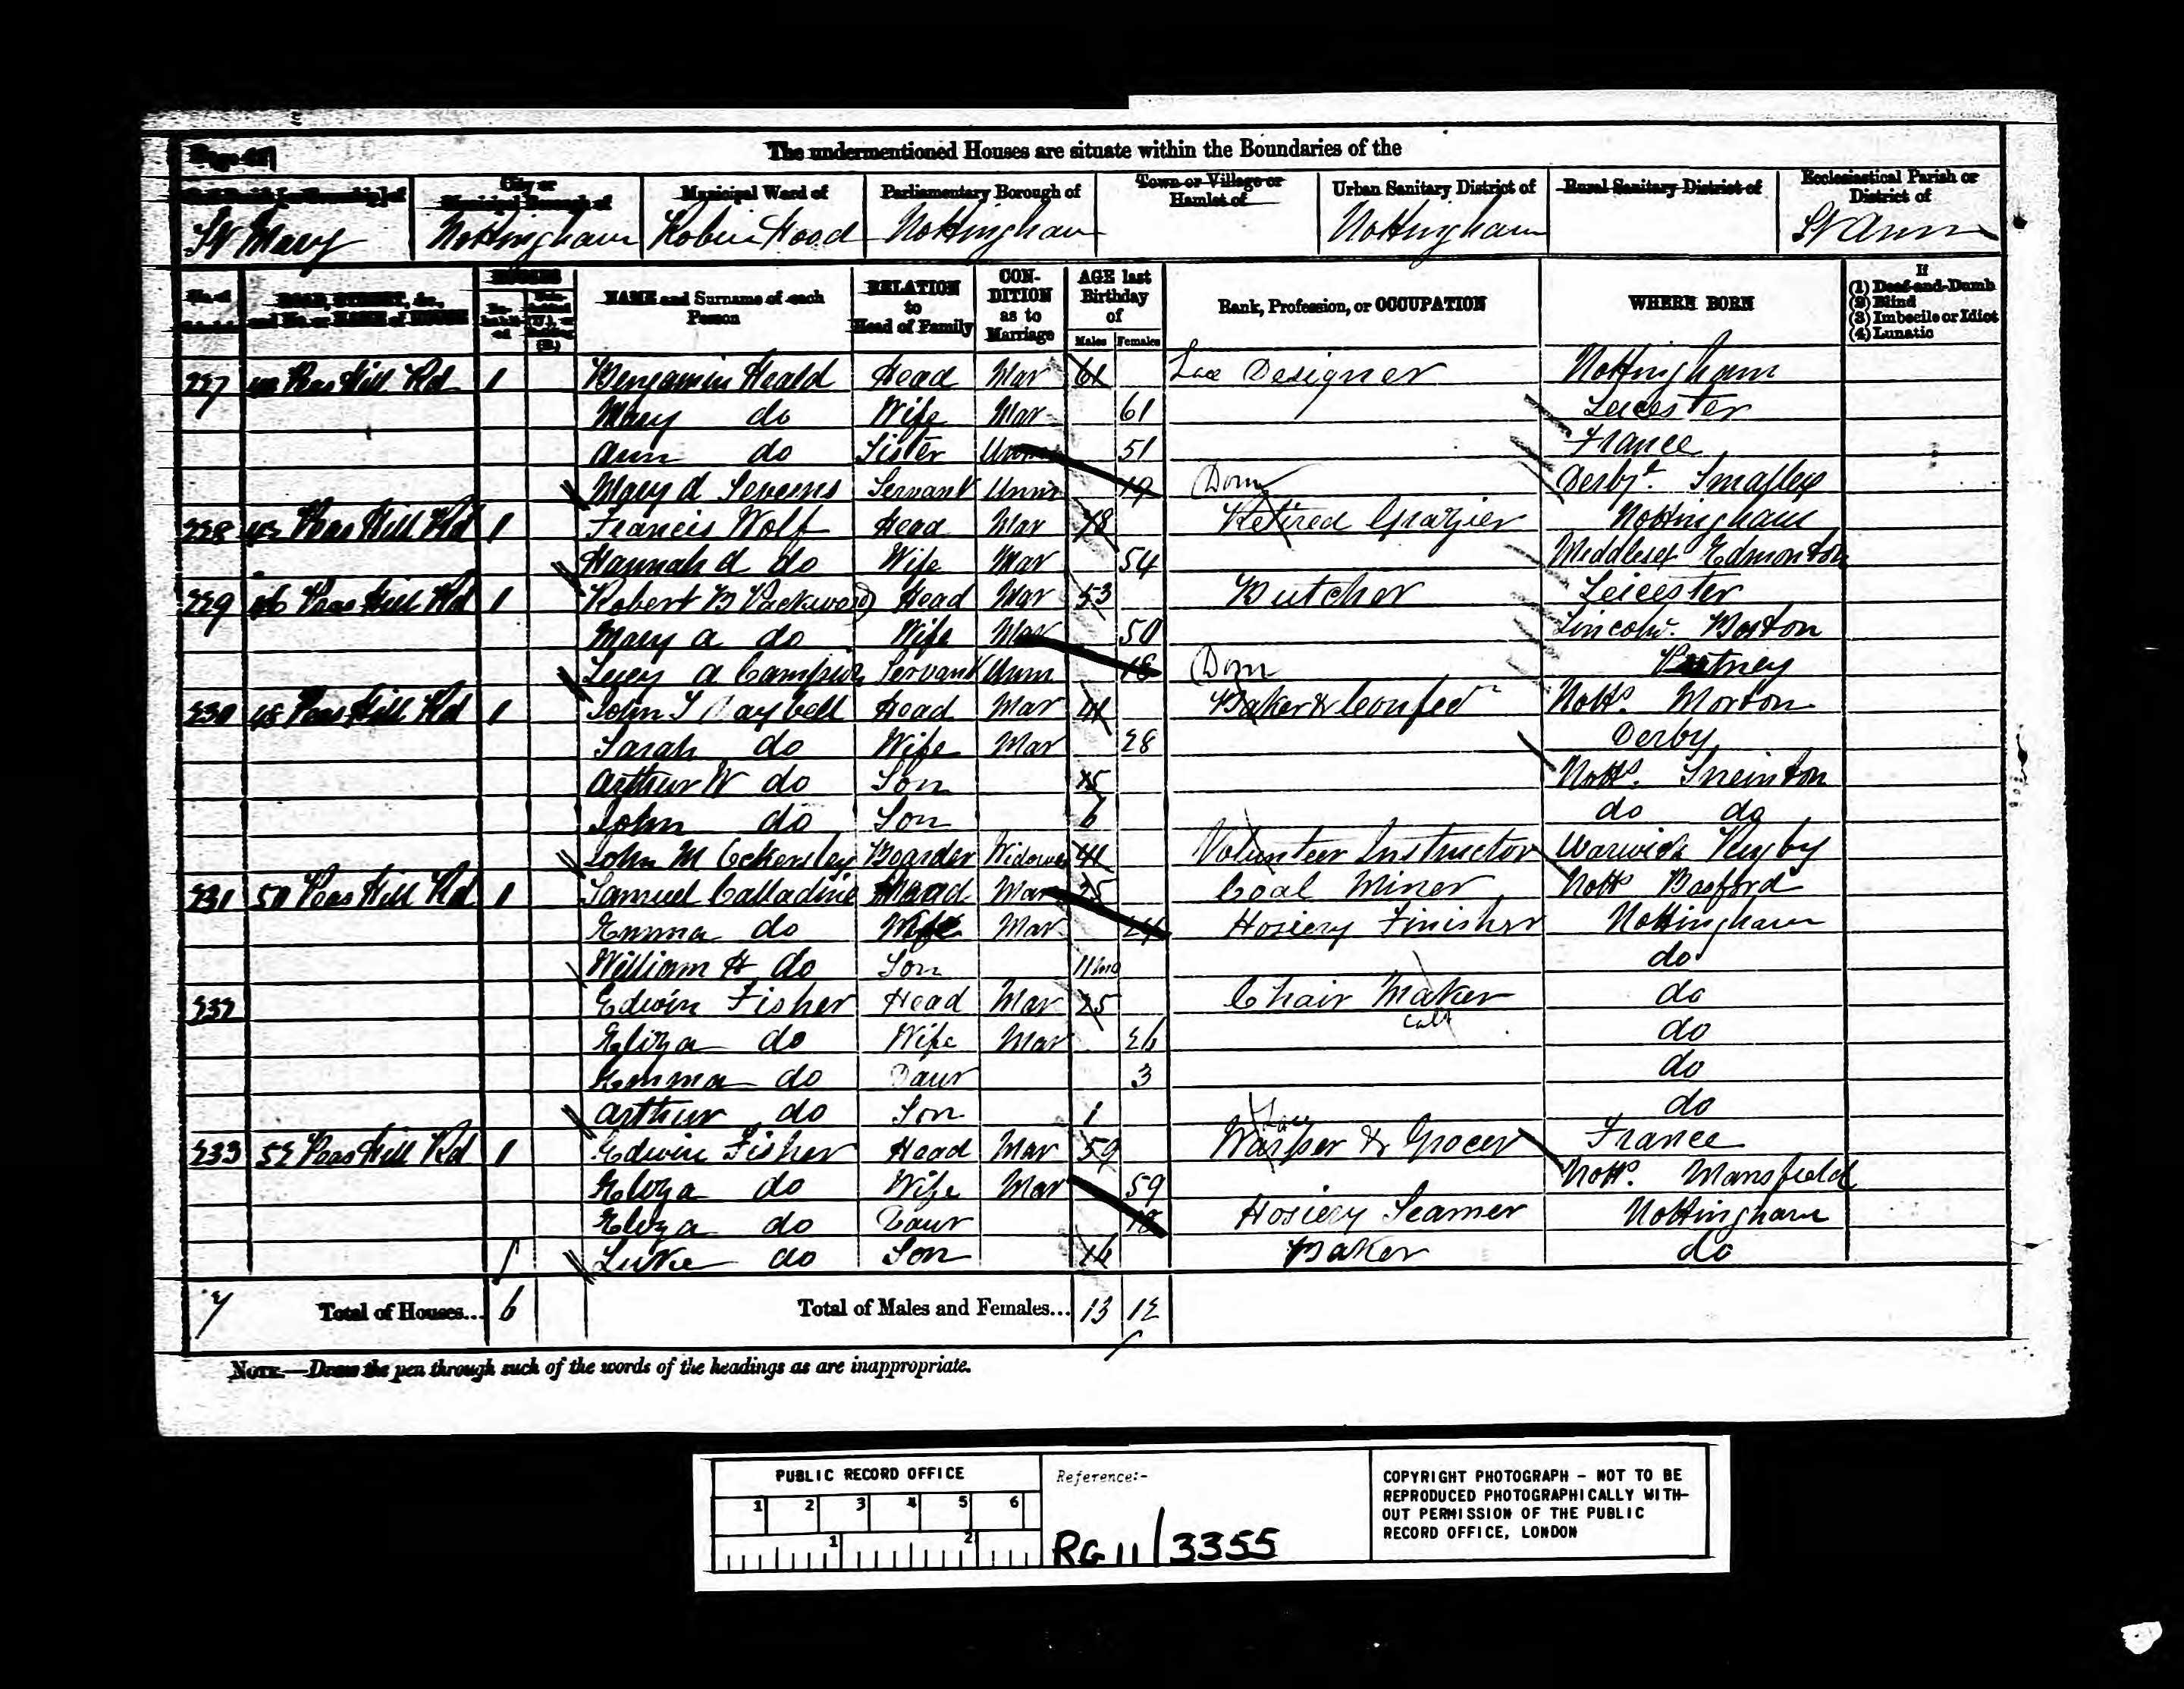 Page 41
The undermentioned Houses are situate within the Boundaries of the
Civil Parish [or Township] of
City or Municipal Borough of
Municipal Ward of
Parliamentary Borough of
Town or Village or Hamlet of
Urban Sanitary District of
Rural Sanitary District of
Ecclesiastical Parish or District of
St Mary Nottingham Robin Hood Nottingham Nottingham St Ann
No. of Schedule
ROAD, STREET, &c., and No. or NAME of HOUSE
HOUSES
In-habit-ed
Unin-habited (U.), or Building (B.)
NAME and Surname of each Person
RELATION to Head of Family
CON-DITION as to Marriage
AGE last Birthday of
Males Females
Rank, Profession, or OCCUPATION
WHERE BORN
If
(1) Deaf-and-Dumb
(2) Blind
(3) Imbecile or Idiot
(4) Lunatic
227 Peas Hill Rd 1 Benjamin Heald Head Mar 61 Lace Designer Nottingham
Mary do Wife Mar 61 Leicester
Ann do Sister Unm 51 France
Mary A Severns Servant Unm 19 Dom Derby. Smalley
228 42 Peas Hill Rd 1 Francis Wolf Head Mar 48 Retired Grazier Nottingham
Hannah A do Wife Mar 54 Middlesex Edmonton
229 46 Peas Hill Rd 1 Robert B Packwood Head Mar 53 Butcher Leicester
Mary A do Wife Mar 50 Lincoln. Boston
Lucy A Campion Servant Unm 18 Dom
230 48 Peas Hill Rd 1 John T Raybell Head Mar 41 Baker & Confec Notts. Morton
Sarah do Wife Mar 28 Derby
Arthur W do Son 15 Notts. Sneinton
John do Son 6 do do
John M Eckersley Boarder Widower 41 Volunteer Instructor Warwick Rugby
231 50 Peas Hill Rd 1 Samuel Calladine Head Mar 25 Coal Miner Notts Basford
Emma do Wife Mar 24 Hosiery Finisher Nottingham
William H do Son 11mo do
232 Edwin Fisher Head Mar 25 Chair Maker do
Eliza do Wife Mar 26 do
Emma do Daur 3 do
Arthur do Son 1 do
Lace
233 52 Peas Hill Rd 1 Edwin Fisher Head Mar 59 Warper & Grocer France
Eliza do Wife Mar 59 Notts. Mansfield
Eliza do Daur 18 Hosiery Seamer Nottingham
Luke do Son 16 Baker do
7 Total of Houses... 6 Total of Males and Females... 13 12
NOTE.—Draw the pen through such of the words of the headings as are inappropriate.
PUBLIC RECORD OFFICE
1 2 3 4 5 6
1 2
Reference:-
RG 11/3355
COPYRIGHT PHOTOGRAPH - NOT TO BE
REPRODUCED PHOTOGRAPHICALLY WITH-
OUT PERMISSION OF THE PUBLIC
RECORD OFFICE, LONDON